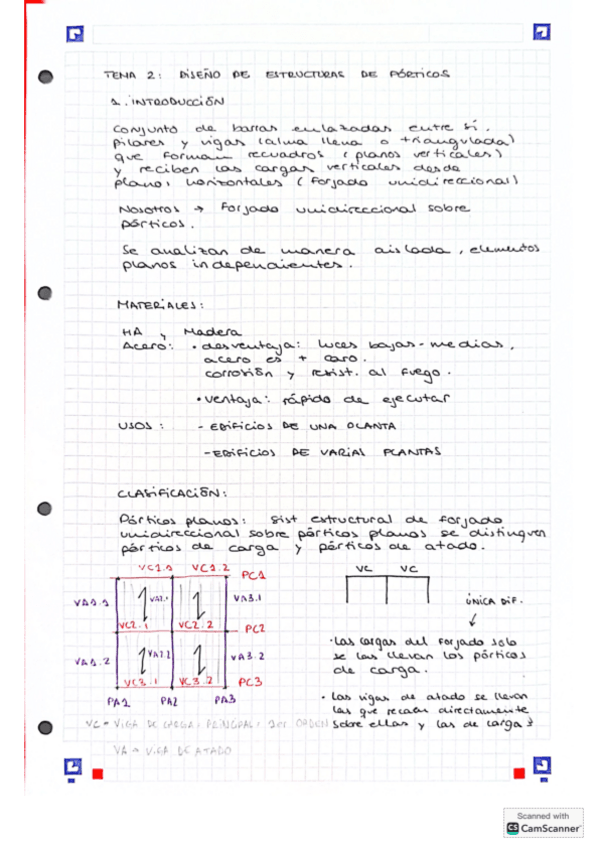 TEMA 2: DISEÑO DE ESTRUCTURAS DE PÓRTICOS
1. INTRODUCCIÓN
Conjunto de barras enlazadas entre sí.
Pilares y vigas (alma llena o triangulada)
que forman recuadros (planos verticales)
y reciben las cargas verticales desde
planos horizontales (forjado unidireccional)
Nosotros → Forjado unidireccional sobre
pórticos.
Se analizan de manera aislada, elementos
planos independientes.
MATERIALES:
HA y Madera
Acero: • desventaja: luces bajas-medias,
acero es + caro.
corrosión y resist. al fuego.
• ventaja: rápido de ejecutar
USOS: - EDIFICIOS DE UNA PLANTA
- EDIFICIOS DE VARIAS PLANTAS
CLASIFICACIÓN:
Pórticos planos: Sist estructural de forjado
unidireccional sobre pórticos planos se distinguen
pórticos de carga y pórticos de atado.
VC1.1 VC1.2 PC1
VA1.1 VA2.1 VA3.1
VC2.1 VC2.2 PC2
VA1.2 VA2.2 VA3.2
VC3.1 VC3.2 PC3
PA1 PA2 PA3
VC = VIGA DE CARGA, PRINCIPAL, 1er ORDEN
VA = VIGA DE ATADO
VC VC
ÚNICA DIF.
• Las cargas del forjado solo
se las llevan los pórticos
de carga.
• Las vigas de atado se llevan
las que recaen directamente
sobre ellas y las de carga
Scanned with
CS CamScanner